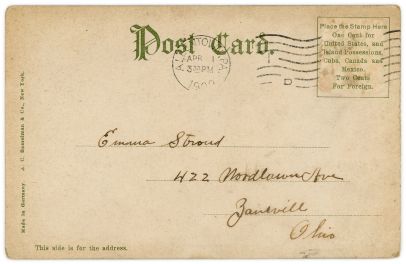 Post Card.
Place the Stamp Here
One Cent for
United States, and
Island Possessions,
Cuba, Canada and
Mexico.
Two Cents
For Foreign.
APR
3 PM
D
Emma Stroud
422 Woodlawn Ave
Zanevill
Ohio
This side is for the address.
Made in Germany. A. C. Bosselman & Co., New York.